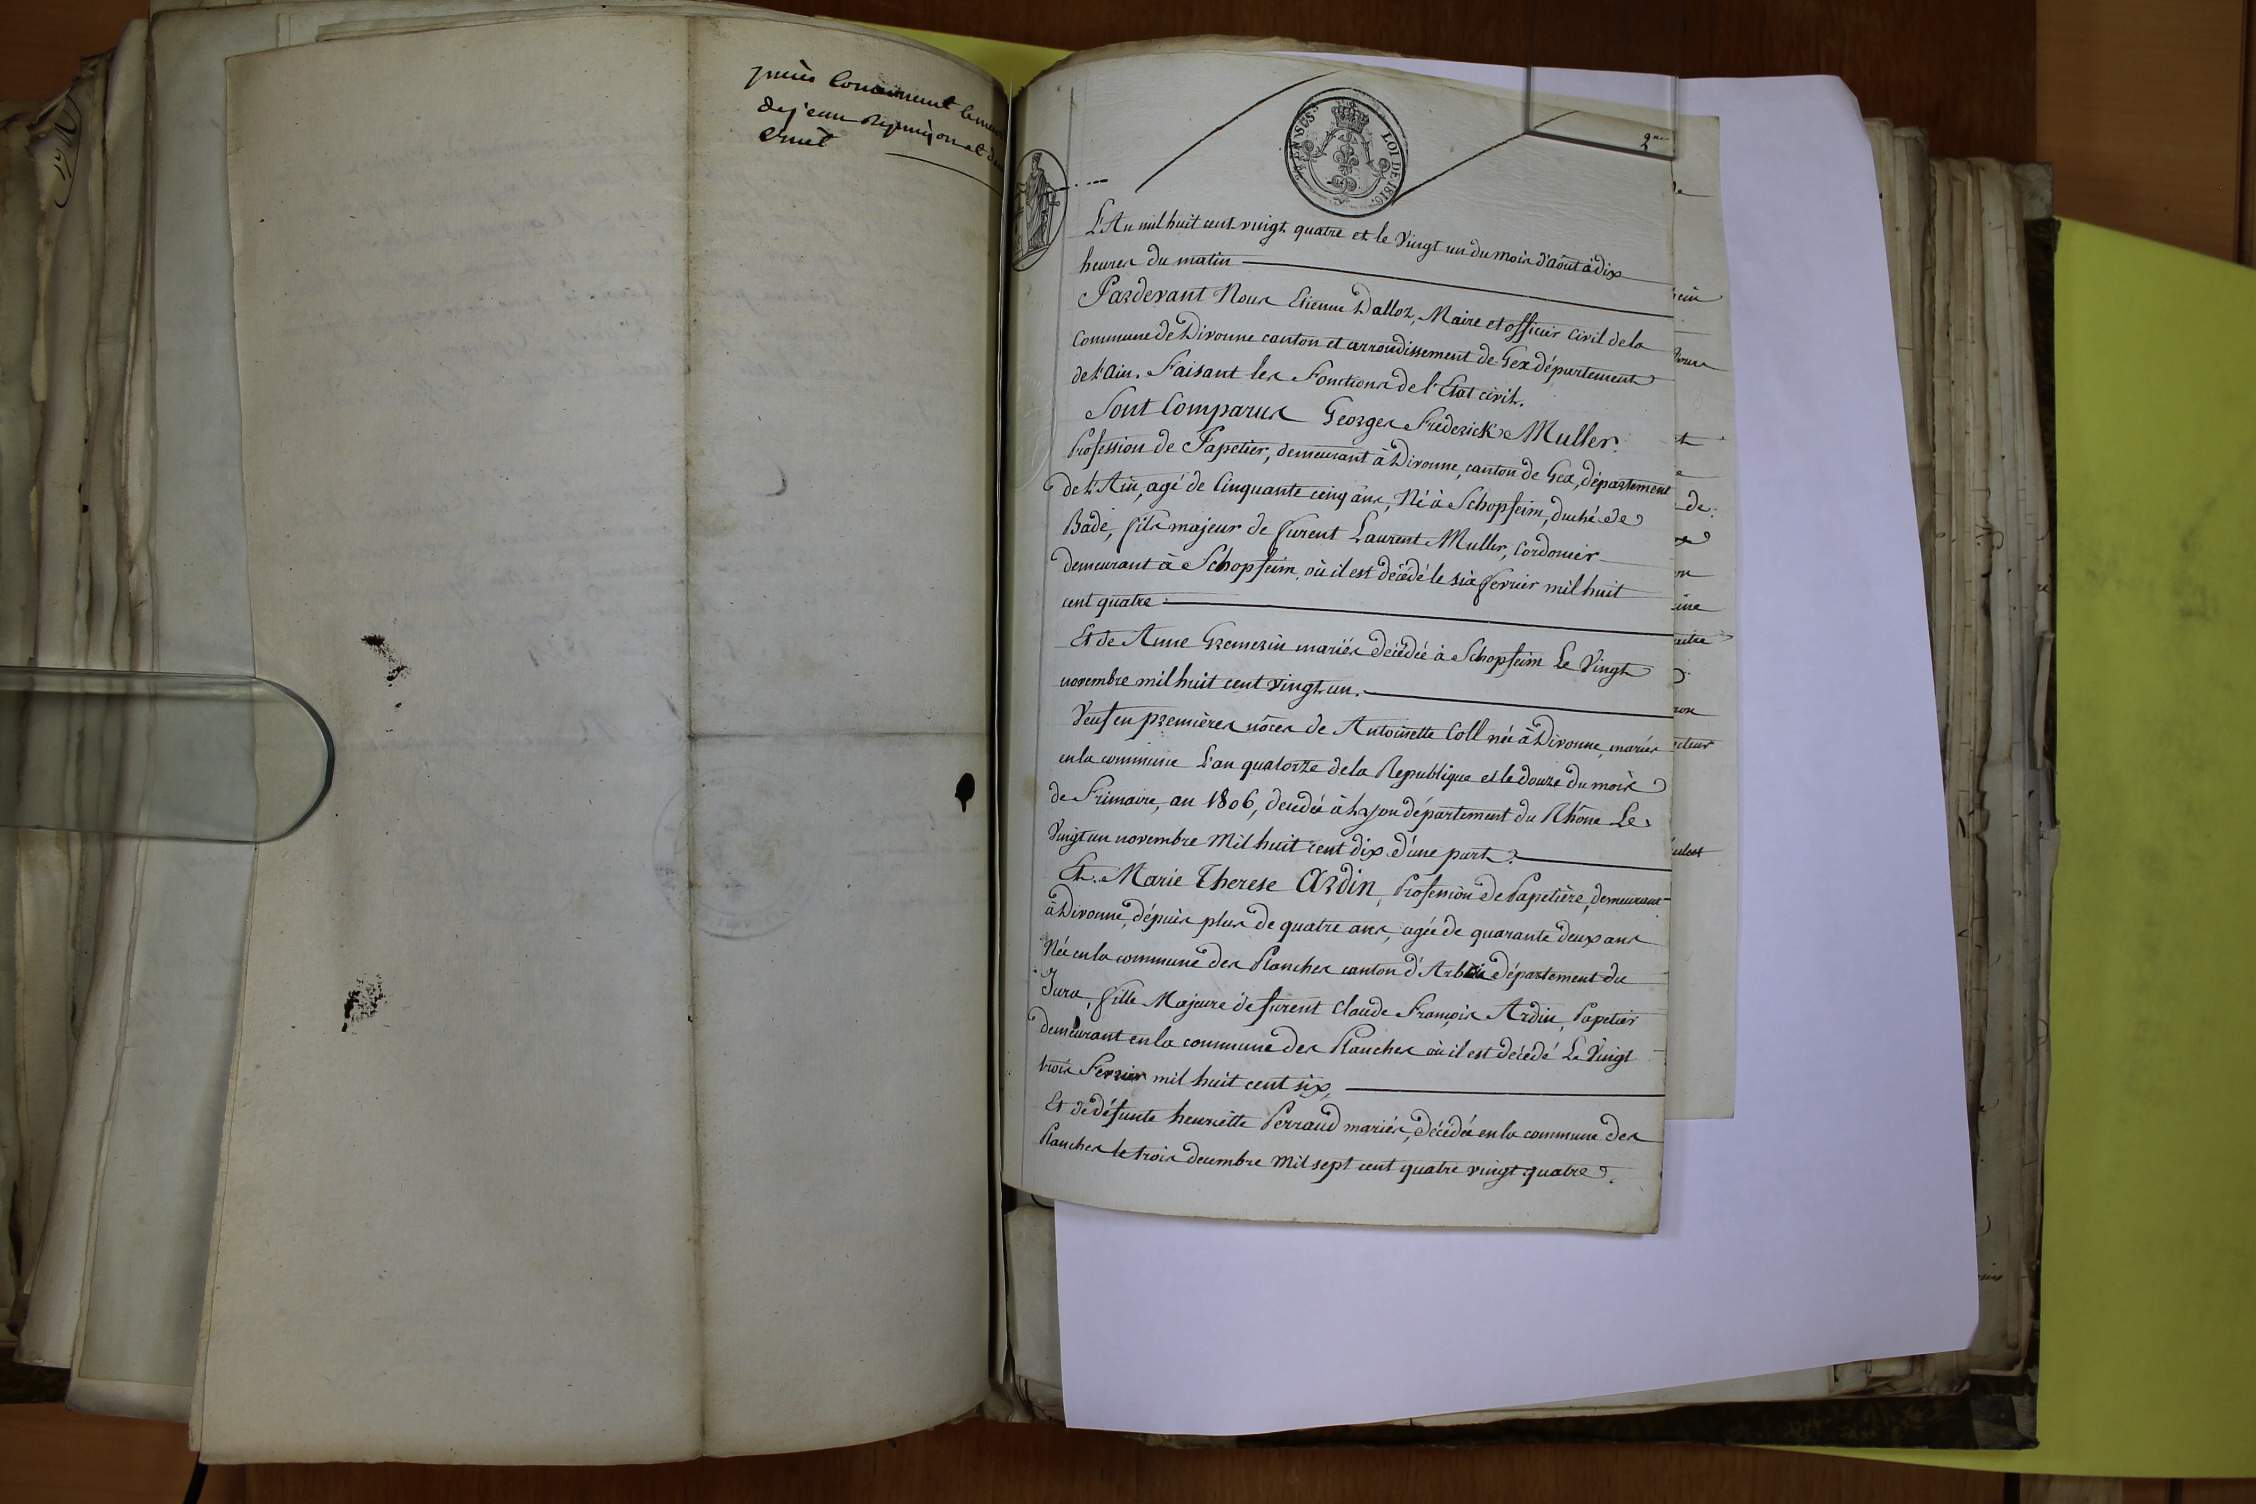 pièces concernant le mariage
de jean
2me
LOI DE 1816.
L'An mil huit cent vingt quatre et le Vingt un du mois d'août à dix
heures du matin
Pardevant Nous Etienne Dalloz, Maire et officier Civil de la
Commune de Divonne canton et arrondissement de Gex département
de l'Ain. Faisant les Fonctions de l'Etat civil.
Sont Comparus Georges Frederick Muller.
Profession de Papetier, demeurant à Divonne, canton de Gex, département
de l'Ain, agé de Cinquante cinq ans, Né à Schopfeim, duché de
Bade, fils majeur de furent Laurent Muller, Cordonier
demeurant à Schopfeim, où il est décédé le six fevrier mil huit
cent quatre
Et de Anne Gremerin mariés décédée à Schopfeim Le Vingt
novembre mil huit cent vingt un.
Veuf en premières nôces de Antoinette Coll née à Divonne, mariés
en la commune L'an quatorze de la Republique et le douze du mois
de Frimaire, an 1806, decedée à Lyon département du Rhône Le
Vingt un novembre Mil huit cent dix d'une part.
Et Marie Therese Ardin, Profession de Papetière, demeurant
à Divonne, dépuis plus de quatre ans, agée de quarante deux ans
Née en la commune des Planches canton d'Arbois département du
Jura, fille Majeure de furent Claude François Ardin, Papetier
demeurant en la commune des Planches où il est décédé Le Vingt
trois Fevrier mil huit cent six,
Et de défunte henriette Perraud mariés, décédée en la commune des
Planches le trois decembre Mil sept cent quatre vingt quatre.